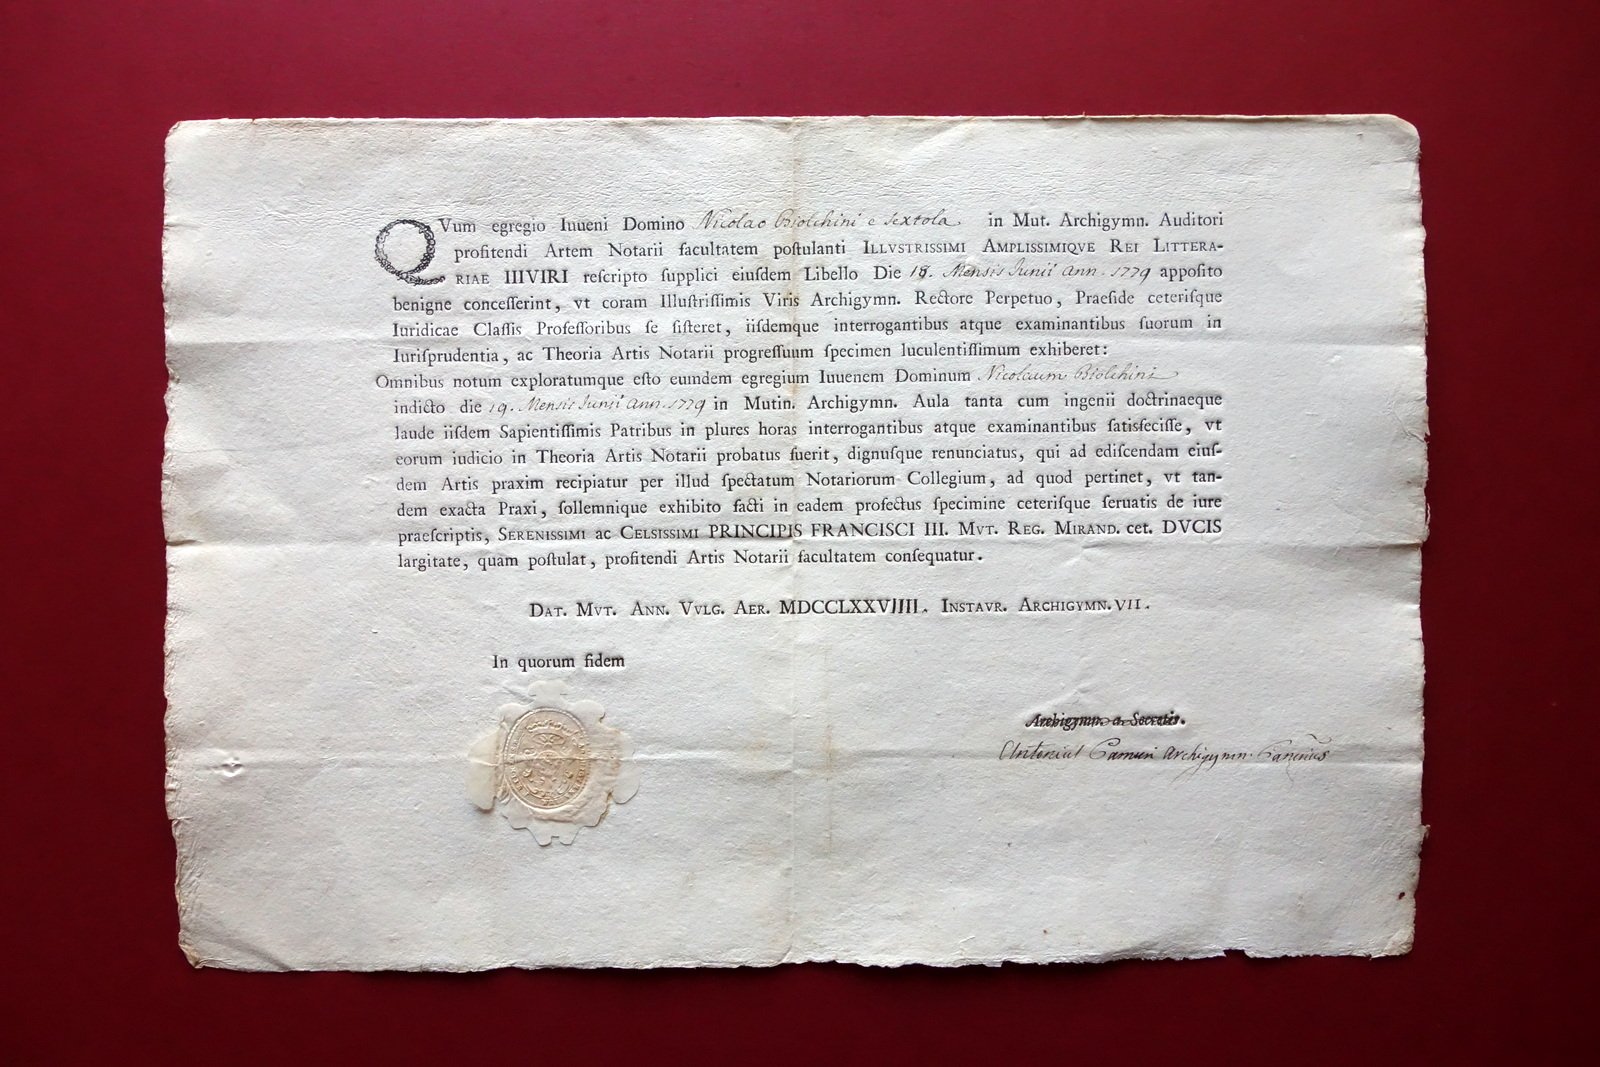 QVum egregio Iuueni Domino Nicolao Biolchini e Sextola in Mut. Archigymn. Auditori
profitendi Artem Notarii facultatem poſtulanti ILLVSTRISSIMI AMPLISSIMIQVE REI LITTERA-
RIAE IIIVIRI reſcripto ſupplici eiuſdem Libello Die 18. Mensis Junii ann. 1779 appoſito
benigne conceſſerint, vt coram Illuſtriſſimis Viris Archigymn. Rectore Perpetuo, Praeſide ceteriſque
Iuridicae Claſſis Profeſſoribus ſe ſiſteret, iiſdemque interrogantibus atque examinantibus ſuorum in
Iuriſprudentia, ac Theoria Artis Notarii progreſſuum ſpecimen luculentiſſimum exhiberet:
Omnibus notum exploratumque eſto eumdem egregium Iuuenem Dominum Nicolaum Biolchini
indicto die 19. Mensis Junii ann. 1779 in Mutin. Archigymn. Aula tanta cum ingenii doctrinaeque
laude iiſdem Sapientiſſimis Patribus in plures horas interrogantibus atque examinantibus ſatisfeciſſe, vt
eorum iudicio in Theoria Artis Notarii probatus fuerit, dignuſque renunciatus, qui ad ediſcendam eiuſ-
dem Artis praxim recipiatur per illud ſpectatum Notariorum Collegium, ad quod pertinet, vt tan-
dem exacta Praxi, ſollemnique exhibito facti in eadem profectus ſpecimine ceteriſque ſeruatis de iure
praeſcriptis, SERENISSIMI AC CELSISSIMI PRINCIPIS FRANCISCI III. MVT. REG. MIRAND. cet. DVCIS
largitate, quam poſtulat, profitendi Artis Notarii facultatem conſequatur.
DAT. MVT. ANN. VVLG. AER. MDCCLXXVIIII. INSTAVR. ARCHIGYMN. VII.
In quorum fidem
Archigymn. a Secretis.
Antonius Camuri Archigymn.